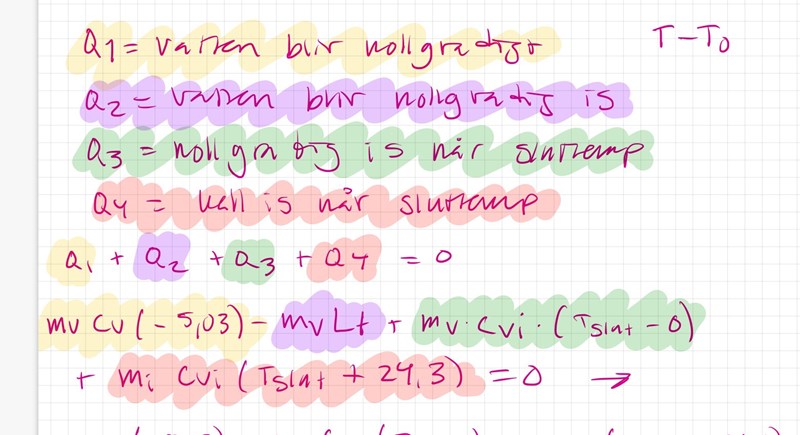 Q1 = vatten blir nollgradigt T-T0
Q2 = vatten blir nollgradig is
Q3 = nollgradig is når sluttemp
Q4 = kall is når sluttemp
Q1 + Q2 + Q3 + Q4 = 0
mv cv (-5,03) - mv Lt + mv · cvi · (Tslut - 0)
+ mi cvi (Tslut + 24,3) = 0 →